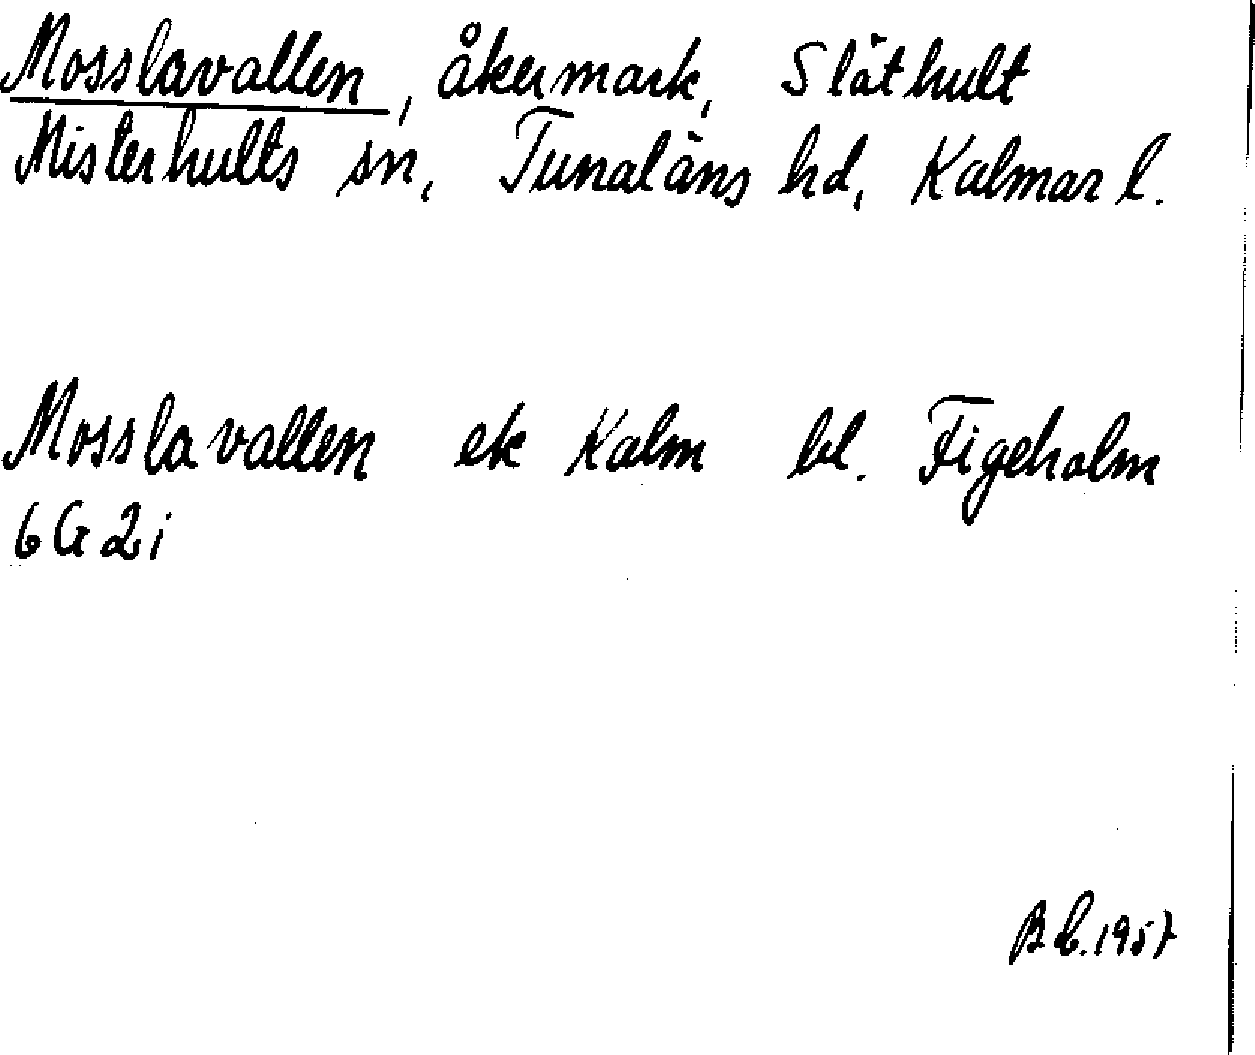 Mosslavallen, åkermark, Släthult
Misterhults sn, Tunaläns hd, Kalmar l.
Mosslavallen ek Kalm bl. Figeholm
6G2i
1957